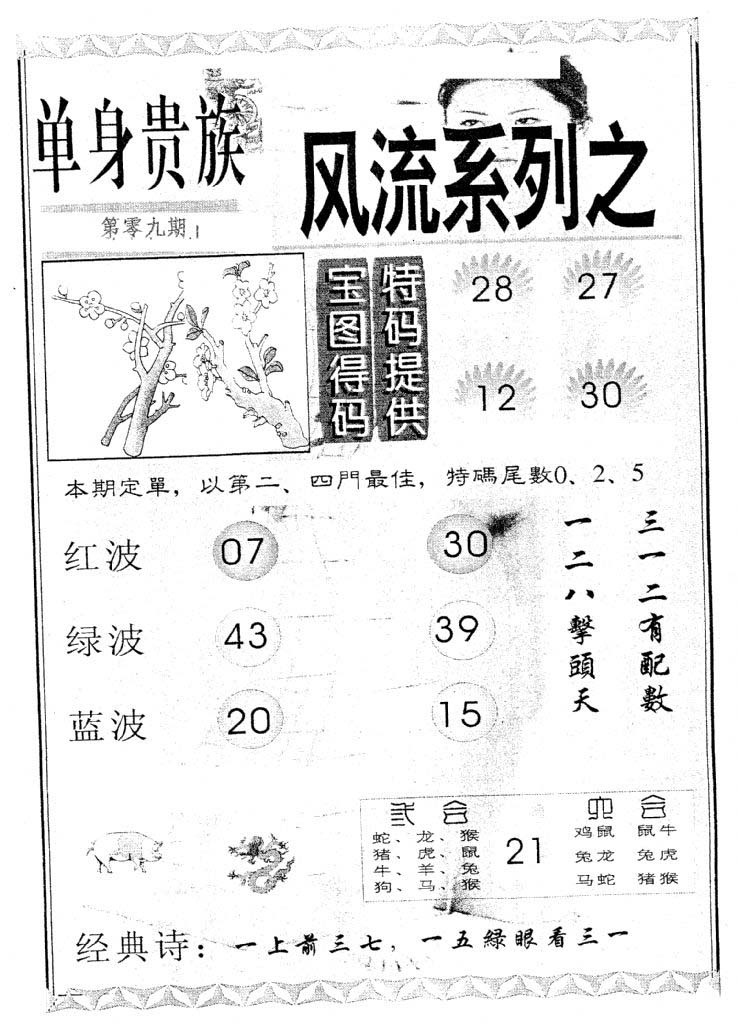 单身贵族
第零九期
风流系列之
宝图得码
特码提供
28 27
12 30
本期定單，以第二、四門最佳，特碼尾數0、2、5
红波 07 30
绿波 43 39
蓝波 20 15
三一二有配數
一二八擊頭天
弍合
蛇、龙、猴
猪、虎、鼠
牛、羊、兔
狗、马、猴
21
六合
鸡鼠 鼠牛
兔龙 兔虎
马蛇 猪猴
经典诗：一上前三七，一五緑眼看三一